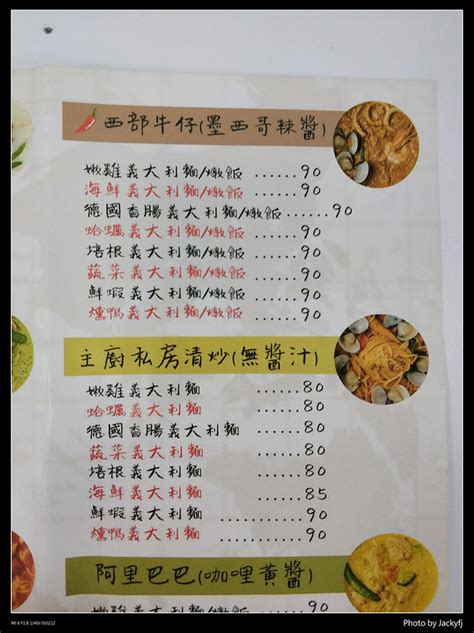 西部牛仔(墨西哥辣醬)
嫩雞義大利麵/燉飯 ......90
海鮮義大利麵/燉飯 ......90
德國香腸義大利麵/燉飯 ......90
蛤蠣義大利麵/燉飯 ......90
培根義大利麵/燉飯 ......90
蔬菜義大利麵/燉飯 ......90
鮮蝦義大利麵/燉飯 ......90
燻鴨義大利麵/燉飯 ......90
主廚私房清炒(無醬汁)
嫩雞義大利麵 ........80
蛤蠣義大利麵 ........80
德國香腸義大利麵 ......80
蔬菜義大利麵 ........80
培根義大利麵 ........80
海鮮義大利麵 ........85
鮮蝦義大利麵 ...........90
燻鴨義大利麵 ...........90
阿里巴巴(咖哩黃醬)
Photo by Jackyfj